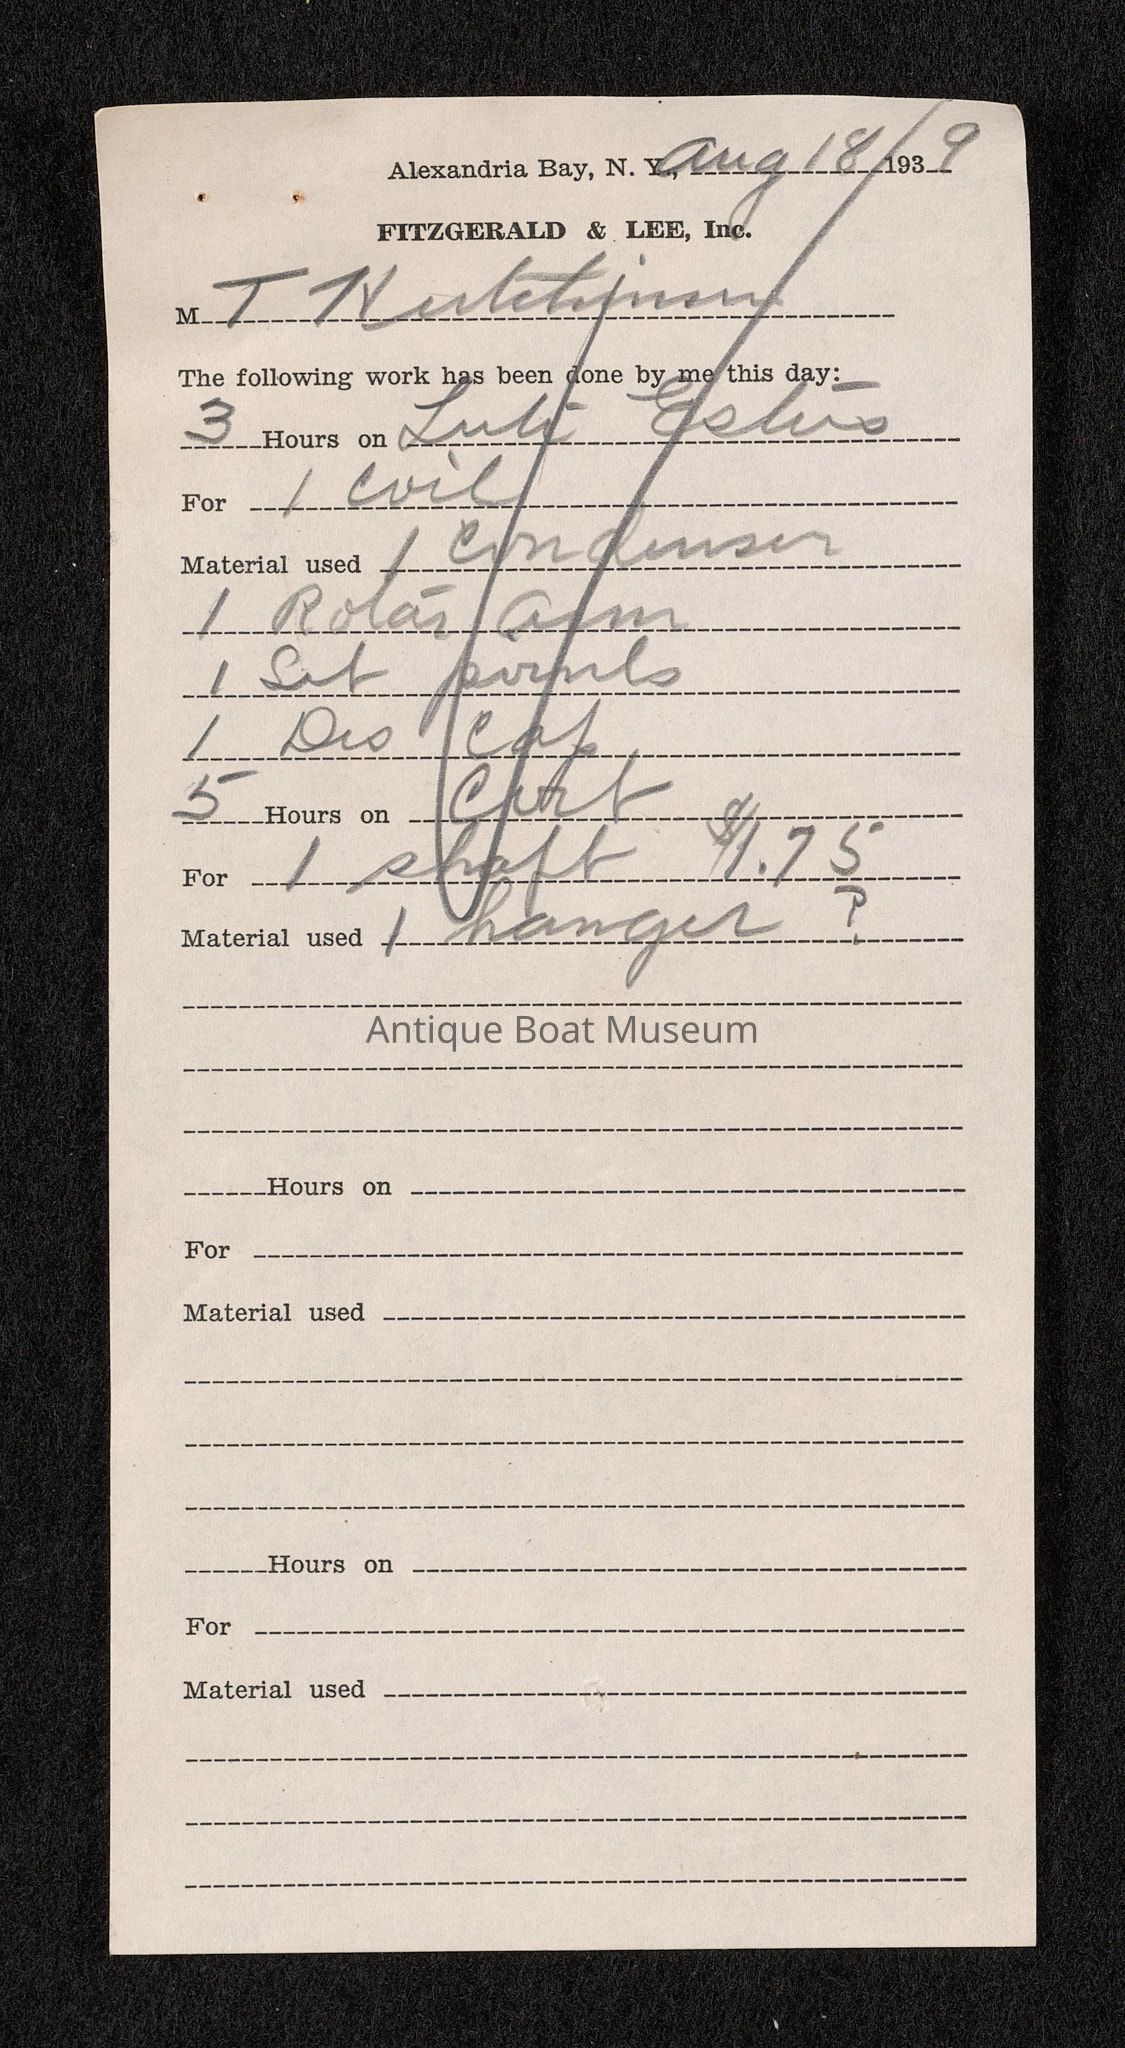 Alexandria Bay, N. Y., Aug 18 1939
FITZGERALD & LEE, Inc.
M T Hutchinson
The following work has been done by me this day:
3 Hours on
For 1 Coil
Material used 1 Condenser
1 Rotar arm
1 Set points
1 Dis Cap
5 Hours on
For 1 shaft $1.75
Material used 1 hanger ?
Antique Boat Museum
Hours on
For
Material used
Hours on
For
Material used